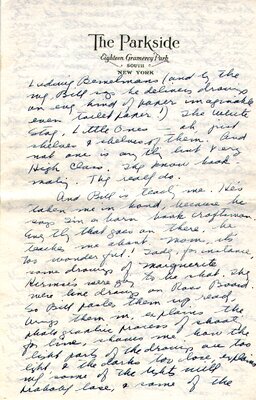 The Parkside
Eighteen Gramercy Park
SOUTH
NEW YORK
Ludwig Bemelmans (and by the
way, Bill says he delivers drawings
on any kind of paper imaginable
even toilet paper!) The White
Stag, Little Ones oh just
shelves & shelves of them. And
not one is any thing but very
High Class. They know book
making. They really do.
And Bill is teaching me. He's
taken me in hand, because he
says I'm a born book craftsman.
Every thing that goes on there, he
teaches me about. Mom, it's
too wonderful! Today, for instance,
some drawings of Marguerite
Kirmse's were to be shot. They
were line drawings on Ross Board.
So Bill pastes them up ready,
brings them in, explains the
photographic process of shooting
for line, shows me how the
light parts of the drawing are too
light, & the darks too close, explains
some of the lights will
probably lose, & some of the